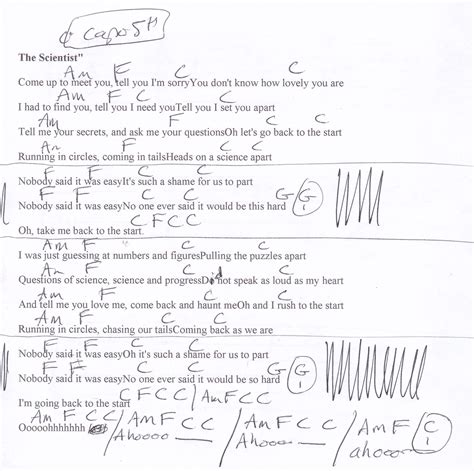 ¢ Capo 5th
The Scientist"
Am F C C
Come up to meet you, tell you I'm sorryYou don't know how lovely you are
Am F C C
I had to find you, tell you I need youTell you I set you apart
Am F C C
Tell me your secrets, and ask me your questionsOh let's go back to the start
Am F C C
Running in circles, coming in tailsHeads on a science apart
F F C C
Nobody said it was easyIt's such a shame for us to part
F F C G G 1
Nobody said it was easyNo one ever said it would be this hard
C F C C
Oh, take me back to the start.
Am F C C
I was just guessing at numbers and figuresPulling the puzzles apart
Am F C C
Questions of science, science and progressDid not speak as loud as my heart
Am F C C
And tell me you love me, come back and haunt meOh and I rush to the start
Am F C C
Running in circles, chasing our tailsComing back as we are
F F C C
Nobody said it was easyOh it's such a shame for us to part
F F C G G 1
Nobody said it was easyNo one ever said it would be so hard
C F C C / Am F C C
I'm going back to the start
Am F C C / Am F C C / Am F C C / Am F C 1
Ooooohhhhhhh Ahoooo Ahoooo ahoooo